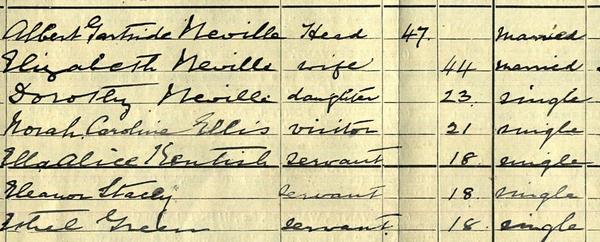 Albert Gartside Neville Head 47. married
Elizabeth Neville wife 44 married
Dorothy Neville daughter 23. single
Norah Caroline Ellis visitor 21 single
Ella Alice Kentish servant 18. single
Eleanor Stacey servant 18. single
Ethel Green servant 18 single